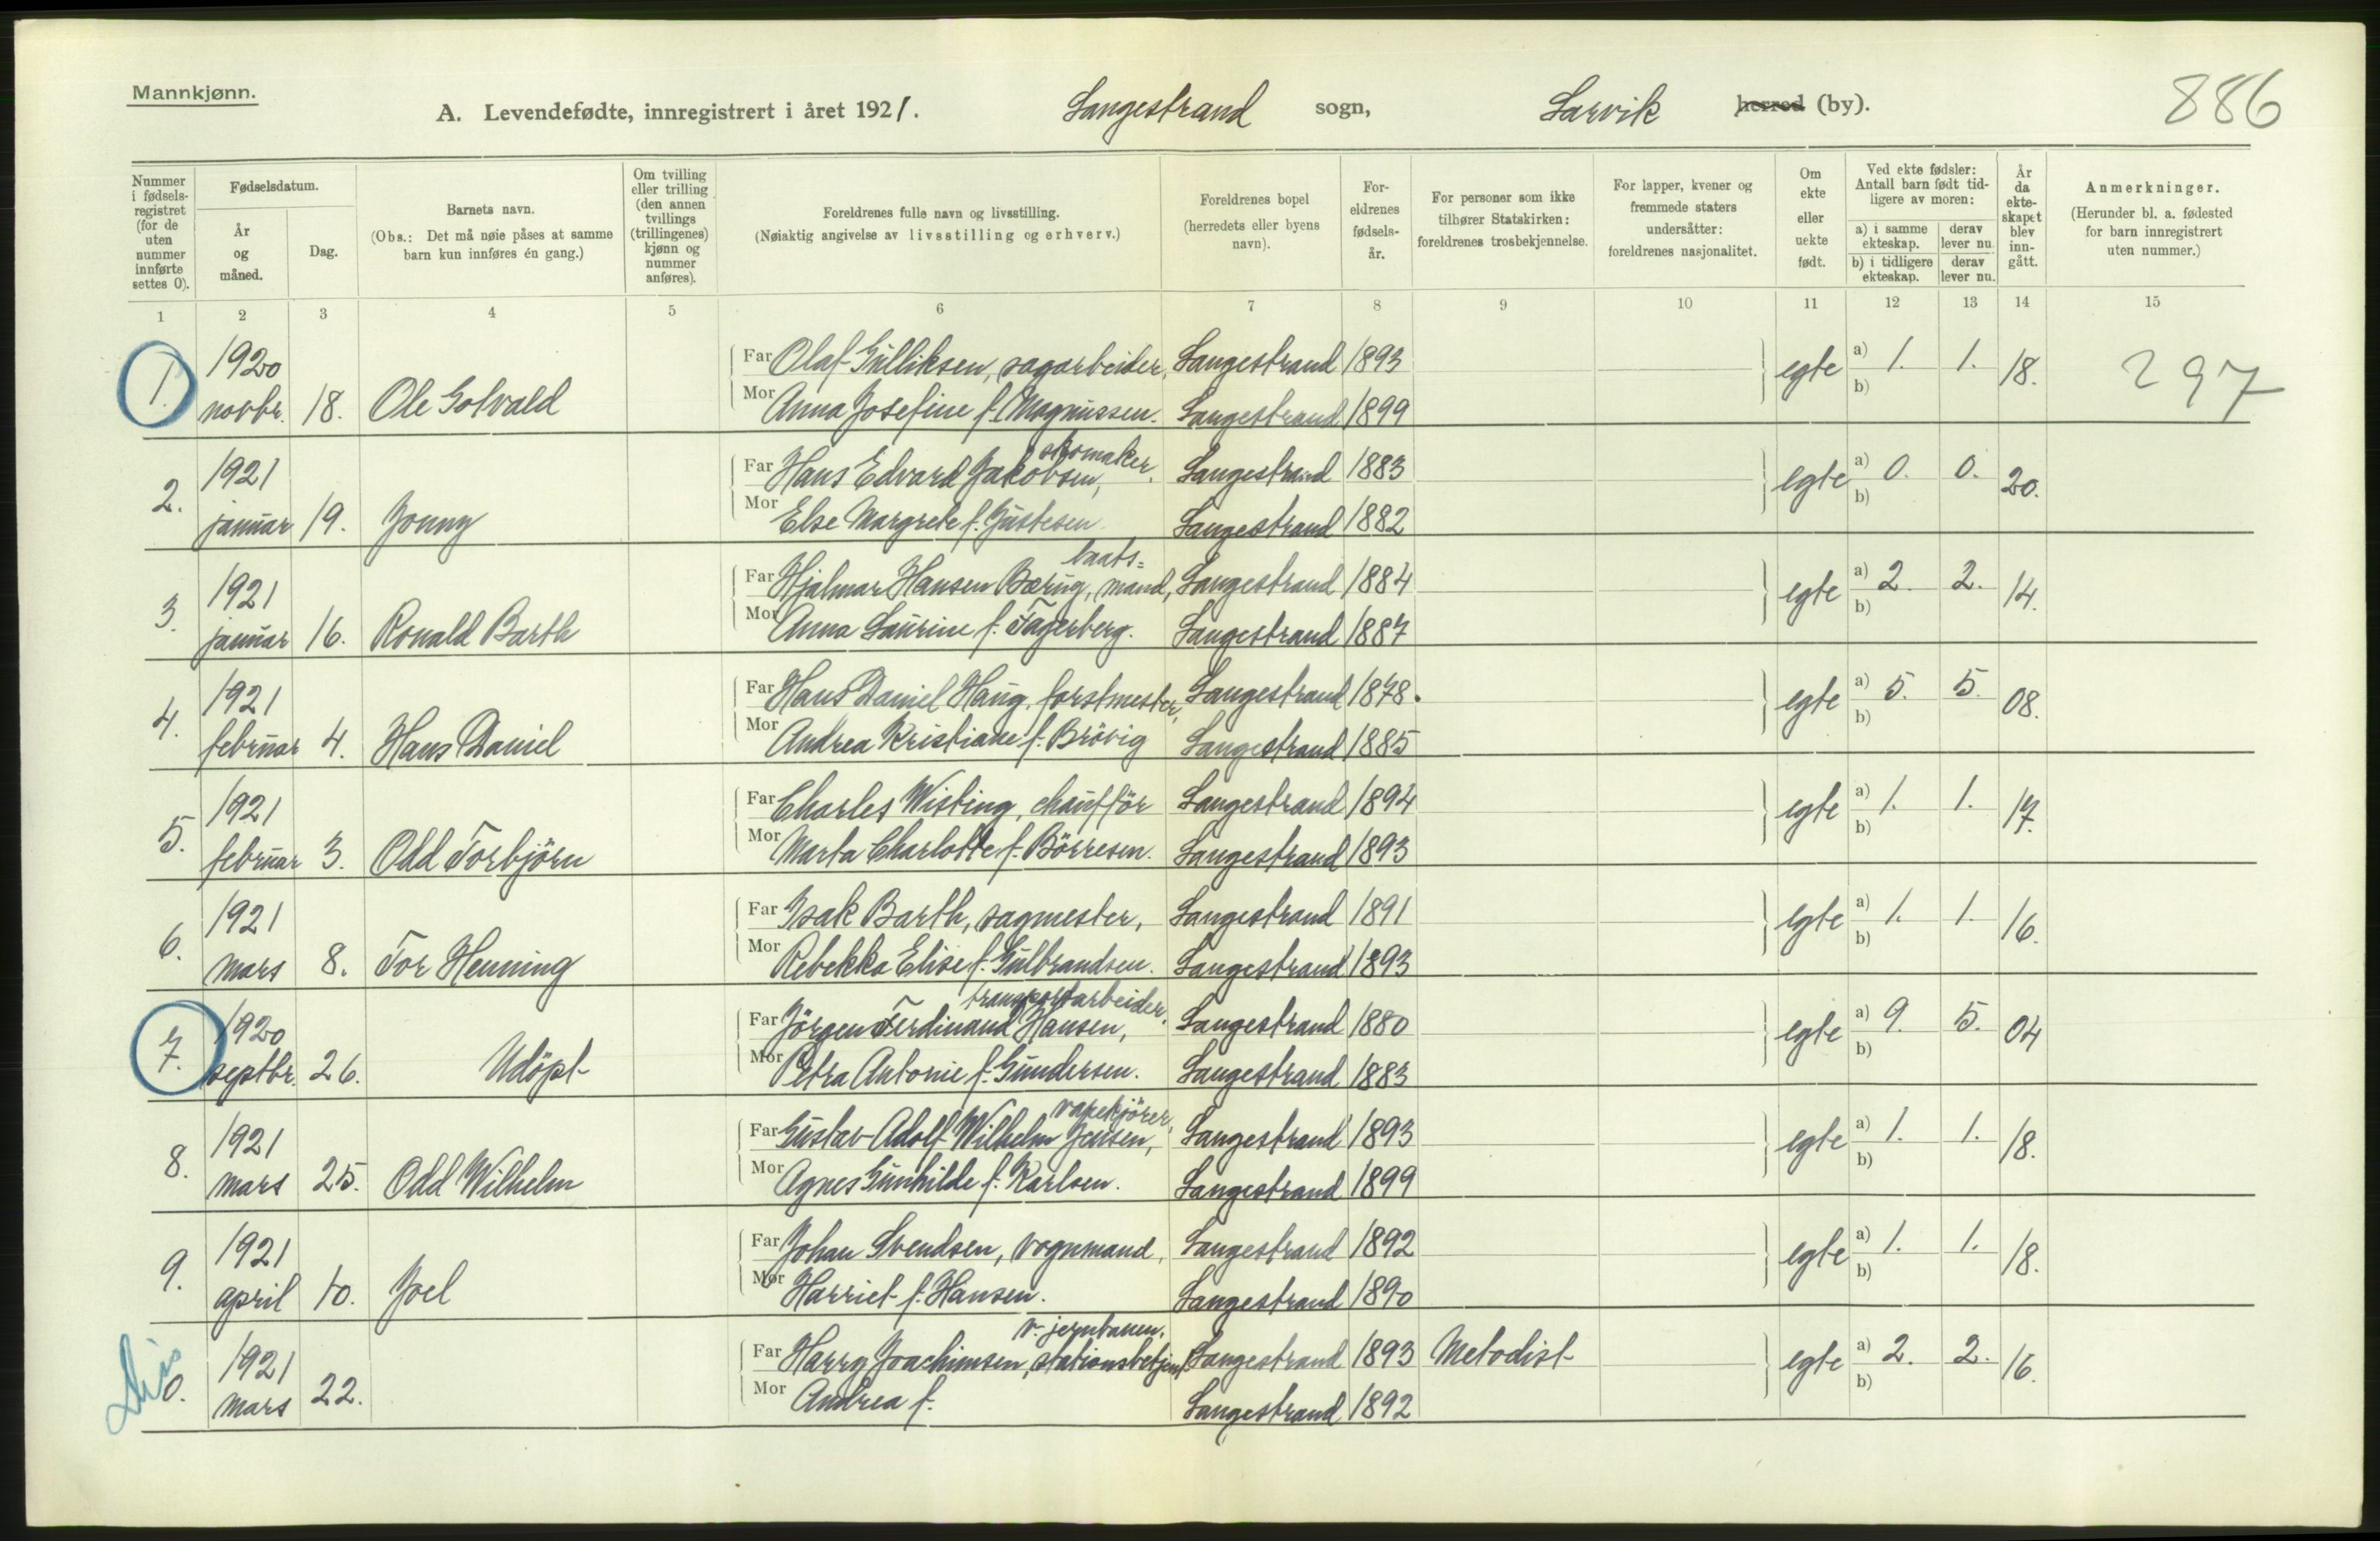 Mannkjønn.
A. Levendefødte, innregistrert i året 1921. Langestrand sogn, Larvik herred (by).
886
Nummer i fødselsregistret (for de uten nummer innførte settes 0).
Fødselsdatum.
År og måned.
Dag.
Barnets navn.
(Obs.: Det må nøie påses at samme barn kun innføres én gang.)
Om tvilling eller trilling (den annen tvillings (trillingenes) kjønn og nummer anføres).
Foreldrenes fulle navn og livsstilling.
(Nøiaktig angivelse av livsstilling og erhverv.)
Foreldrenes bopel (herredets eller byens navn).
For-eldrenes fødsels-år.
For personer som ikke tilhører Statskirken: foreldrenes trosbekjennelse.
For lapper, kvener og fremmede staters undersåtter: foreldrenes nasjonalitet.
Om ekte eller uekte født.
Ved ekte fødsler: Antall barn født tid-ligere av moren:
a) i samme ekteskap. derav lever nu.
b) i tidligere ekteskap. derav lever nu.
År da ekte-skapet blev inn-gått.
Anmerkninger.
(Herunder bl. a. fødested for barn innregistrert uten nummer.)
1 2 3 4 5 6 7 8 9 10 11 12 13 14 15
1. 1920 novbr. 18. Ole Gotvald
Far Olaf Gulliksen, sagarbeider, Langestrand 1893 egte a) 1. 1. 18. 297
Mor Anna Josefine f. Magnussen. Langestrand 1899 b)
2. 1921 januar 19. Jonny
Far Hans Edvard Jakobsen, skomaker. Langestrand 1883 egte a) 0. 0. 20.
Mor Else Margrete f. Justesen Langestrand 1882 b)
3. 1921 januar 16. Ronald Barth
Far Hjalmar Hansen Bærug, baats=mand, Langestrand 1884 egte a) 2. 2. 14.
Mor Anna Laurine f. Fagerberg. Langestrand 1887 b)
4. 1921 februar 4. Hans Daniel
Far Hans Daniel Haug, forstmester, Langestrand 1878. egte a) 5. 5. 08.
Mor Andrea Kristiane f. Brövig Langestrand 1885 b)
5. 1921 februar 3. Odd Torbjörn
Far Charles Wisting, chaufför Langestrand 1894 egte a) 1. 1. 17.
Mor Marta Charlotte f. Börresen. Langestrand 1893 b)
6. 1921 mars 8. Tor Henning
Far Isak Barth, sagmester, Langestrand 1891 egte a) 1. 1. 16.
Mor Rebekka Elise f. Gulbrandsen. Langestrand 1893 b)
7. 1920 septbr. 26. Udöpt
Far Jörgen Ferdinand Hansen, transportarbeider. Langestrand 1880 egte a) 9. 5. 04
Mor Petra Antonie f. Gundersen. Langestrand 1883 b)
8. 1921 mars 25. Odd Wilhelm
Far Gustav Adolf Wilhelm Jensen, Langestrand 1893 egte a) 1. 1. 18.
Mor Agnes Gunhilde f. Karlsen. Langestrand 1899 b)
9. 1921 april 10. Joel
Far Johan Svendsen, vognmand, Langestrand 1892 egte a) 1. 1. 18.
Mor Harriet f. Hansen. Langestrand 1890 b)
Dis 0. 1921 mars 22.
Far Harry Joachimsen, stationsbetjent v. jernbanen. Langestrand 1893 Metodist egte a) 2. 2. 16.
Mor Andrea f. Langestrand 1892 b)